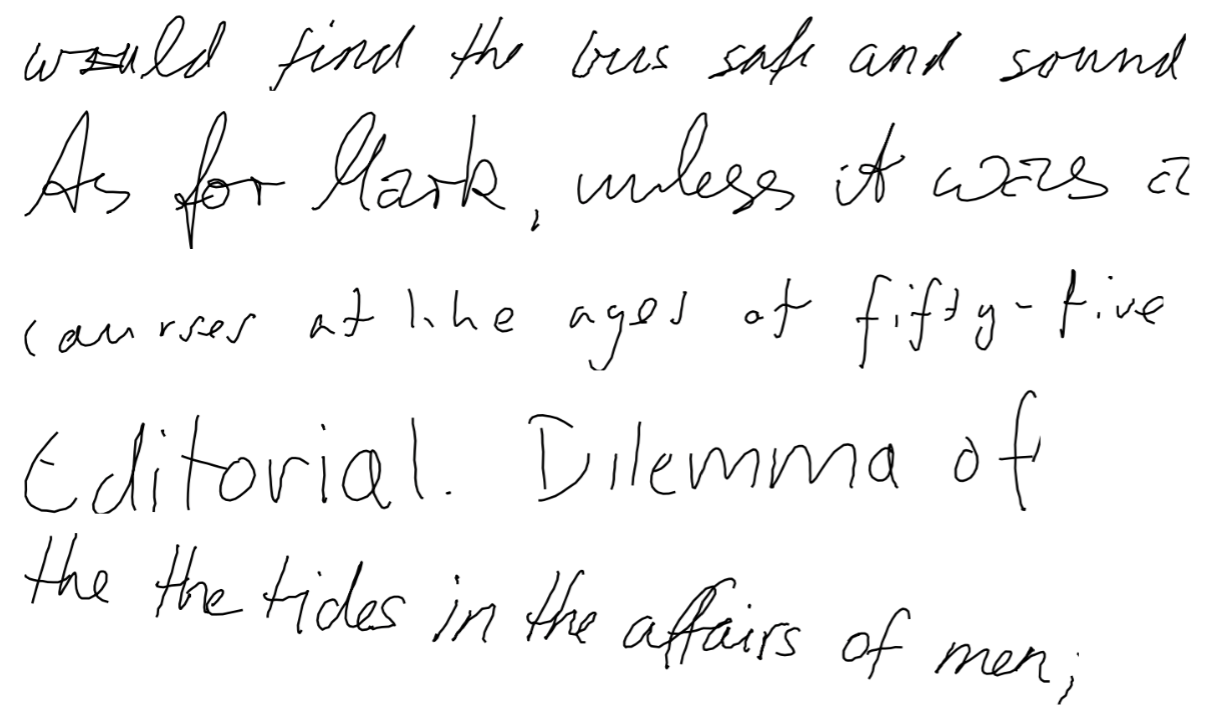 would find the bus safe and sound
As for Mark, unless it was a
courses at like ages at fifty-five
Editorial. Dilemma of
the the tides in the affairs of men;